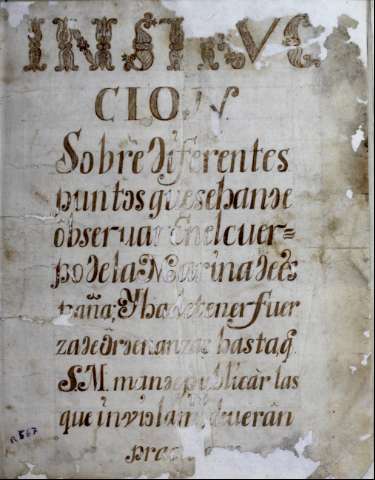 INSTRVC
CION.
Sobre diferentes
puntos que se han de
óbseruar En el cuer=
po de la Marina de Es
paña, Y ha de tener fuer
za de Ordenanzas hasta, q̃.
S. M. mande publicar las
que inviolam, deuerán
R 567